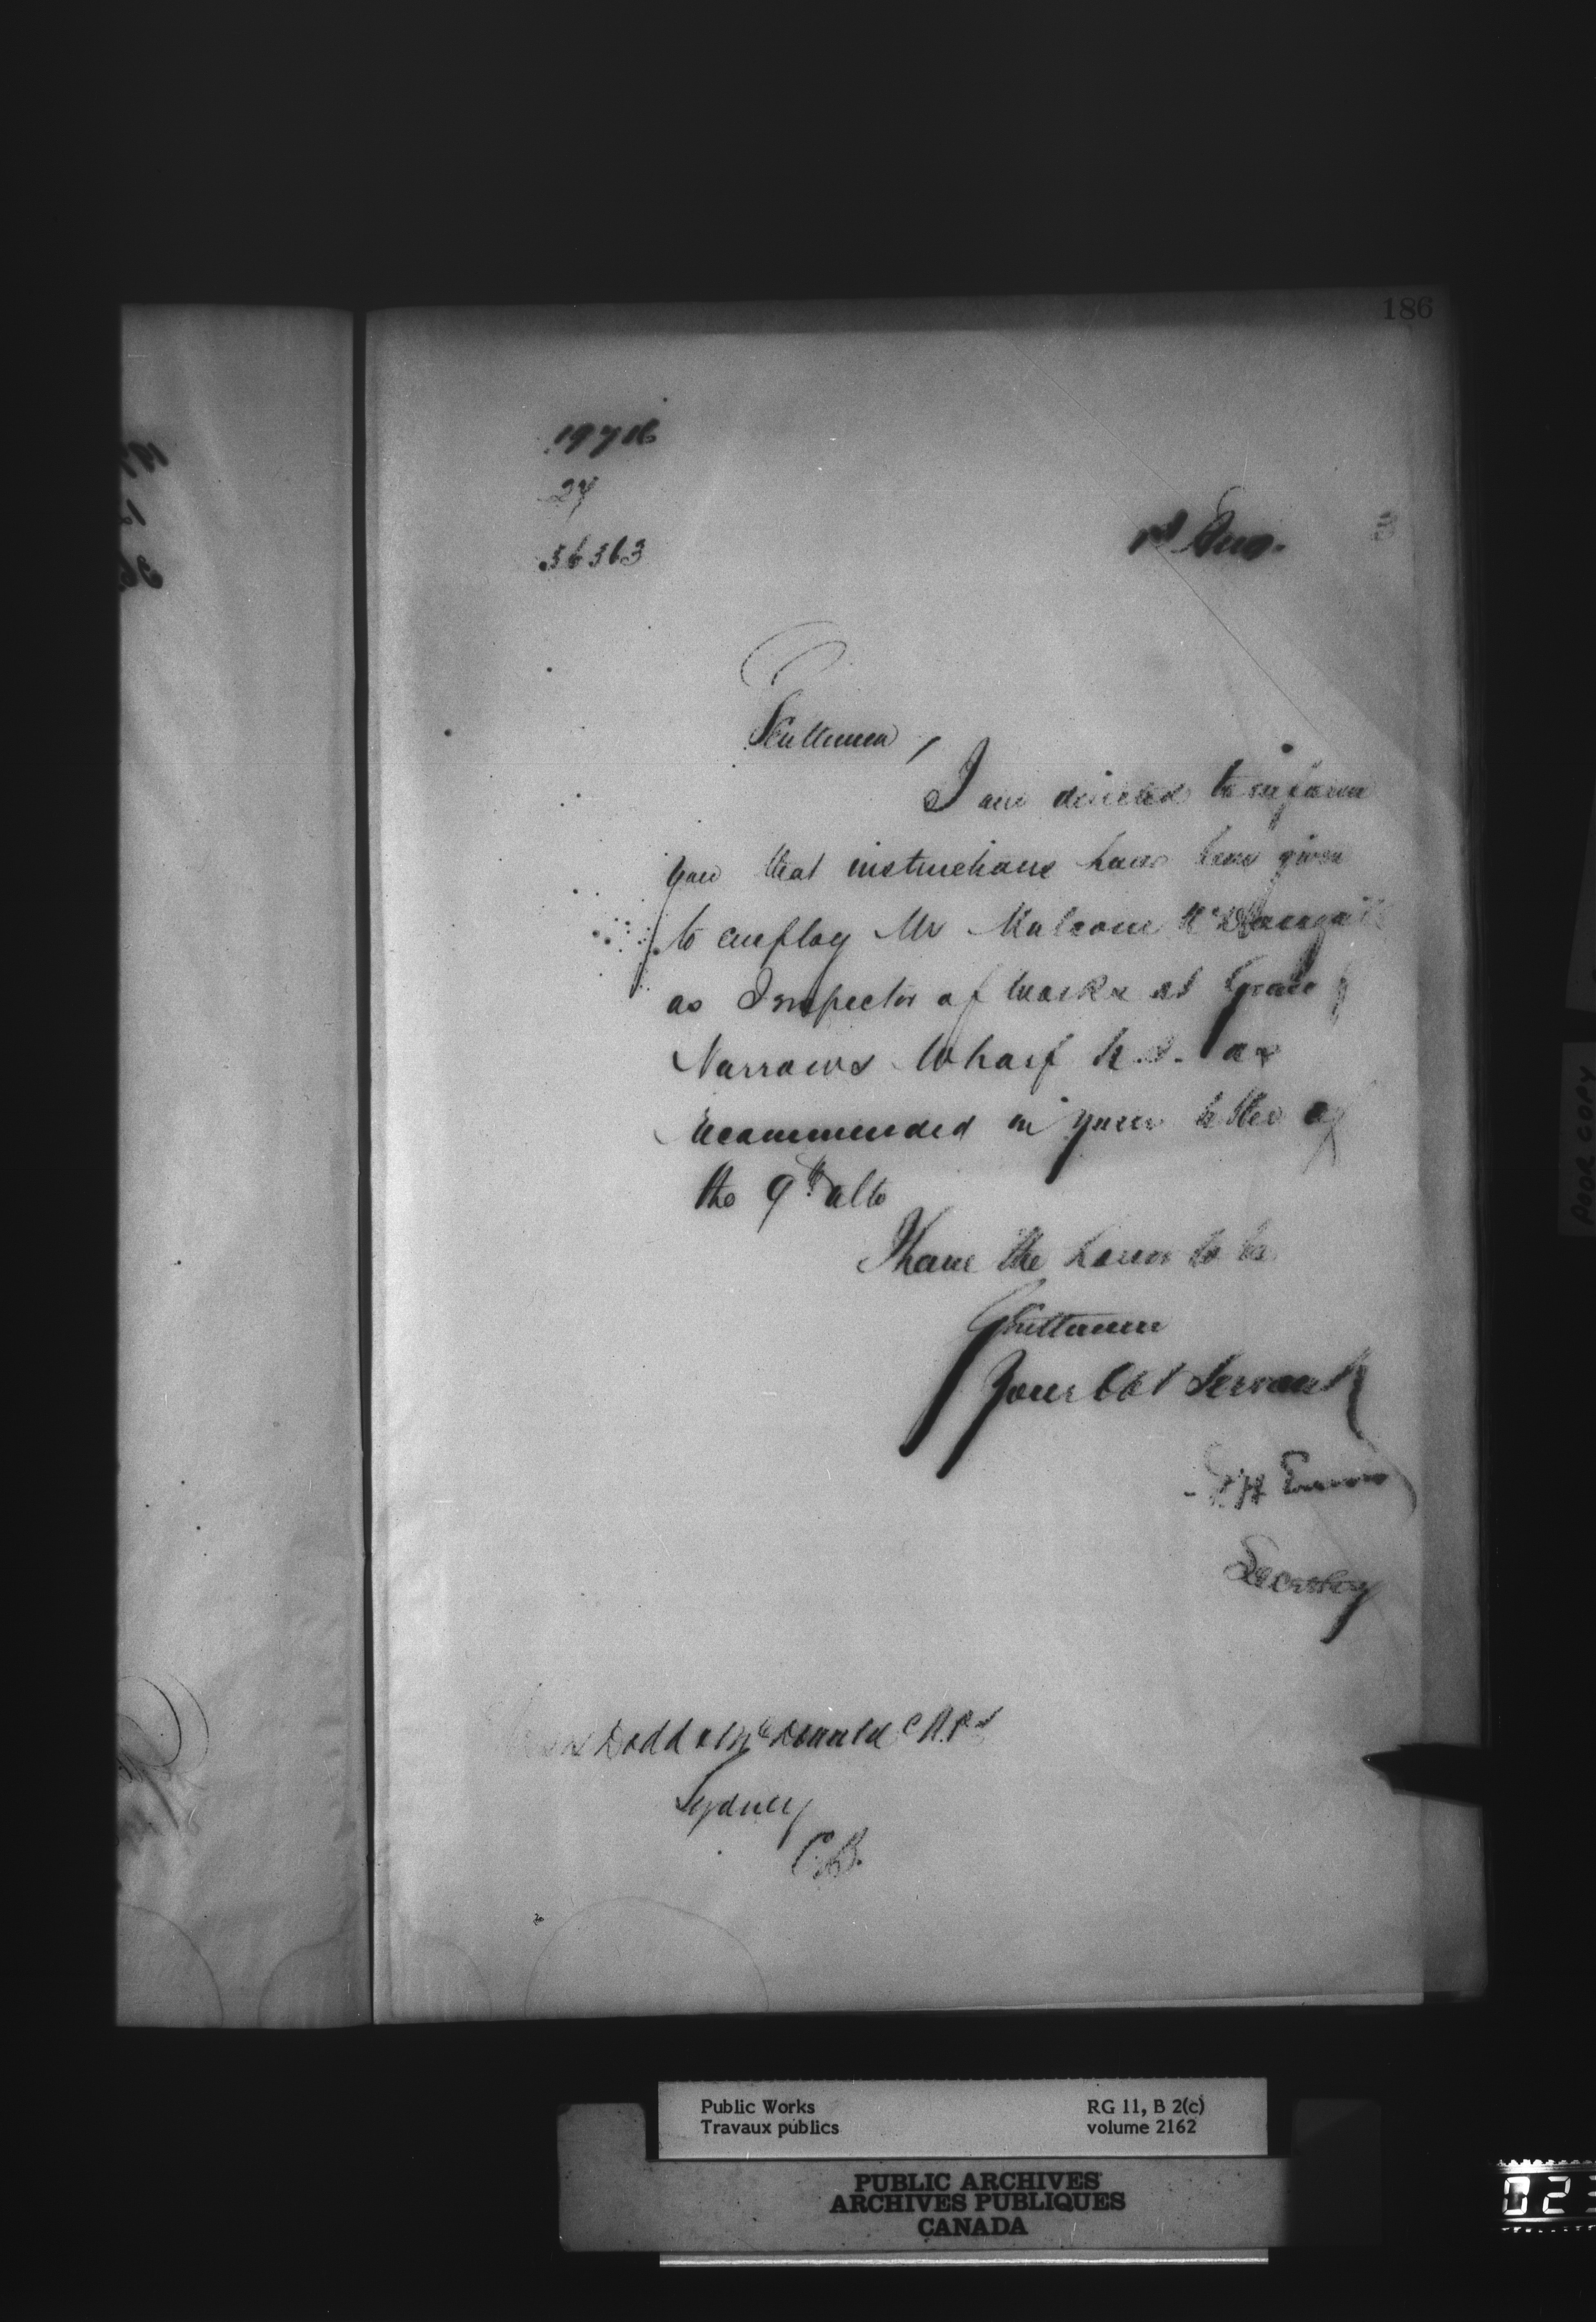 186
19716
27
36363
Gentlemen,
I am directed to inform
you that instructions have been given
to employ Mr Malcolm McDougall
as Inspector of Works at Grand
Narrows Wharf N.S. as
recommended in your letter of
the 9th ulto
I have the honor to be
Gentlemen
Your Obt Servant
Secretary
Dodd & McDonald
Sydney
C.B.
POOR COPY
Public Works
Travaux publics
RG 11, B 2(c)
volume 2162
PUBLIC ARCHIVES
ARCHIVES PUBLIQUES
CANADA
023